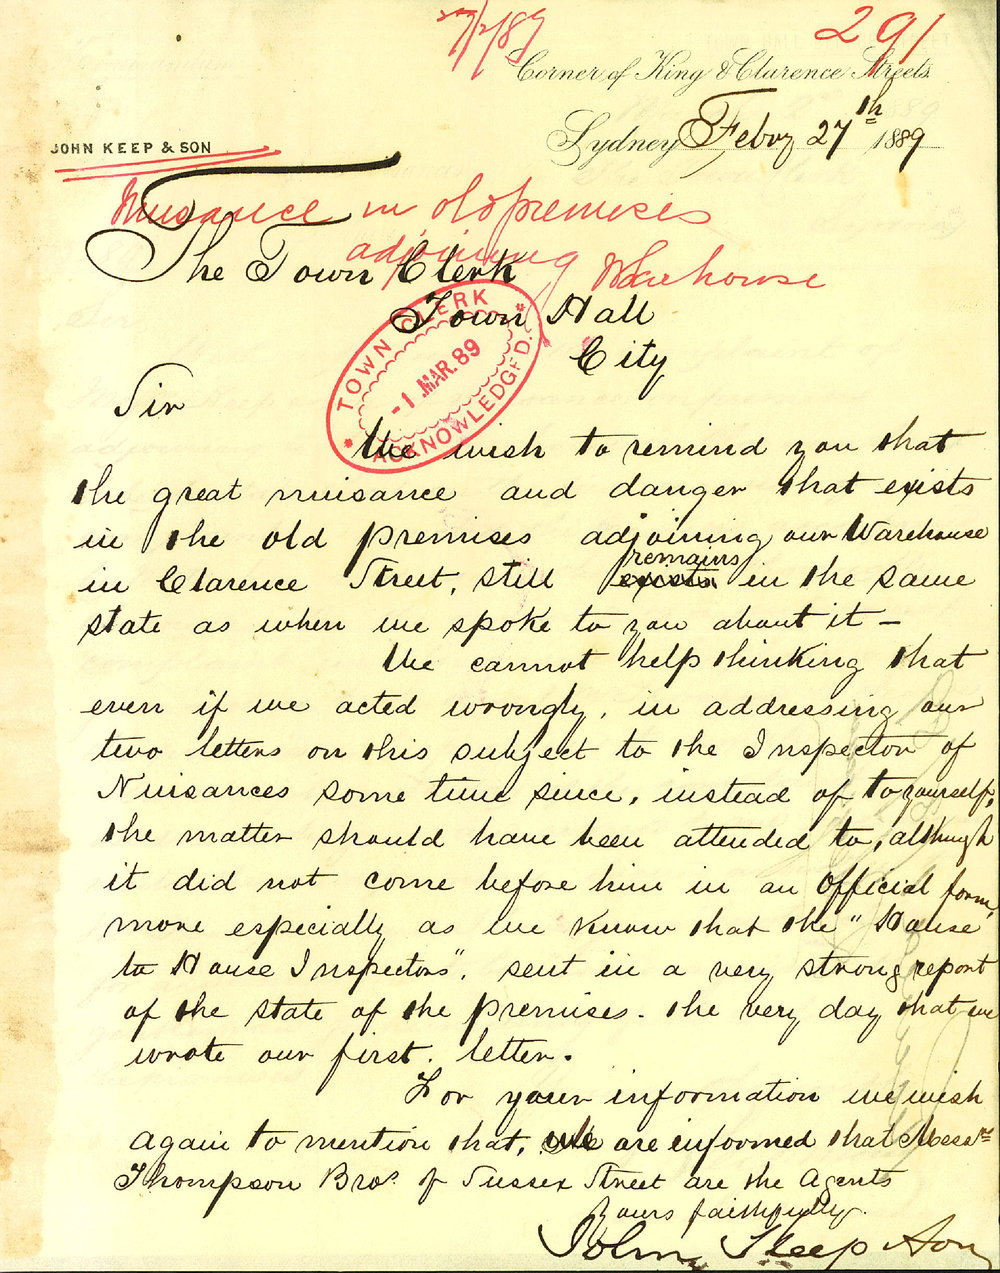 27/2/89
291
Corner of King & Clarence Streets.
Sydney Feby 27th 1889
JOHN KEEP & SON
Nuisance in old premises
adjoining Warehouse
The Town Clerk
Town Hall
City
TOWN CLERK
-1 MAR.89
ACKNOWLEDGED.
Sir
We wish to remind you that
the great nuisance and danger that exists
in the old premises adjoining our Warehouse
remains
in Clarence Street, still exists in the same
state as when we spoke to you about it –
We cannot help thinking that
even if we acted wrongly, in addressing our
two letters on this subject to the Inspector of
Nuisances some time since, instead of to yourself,
the matter should have been attended to, although
it did not come before him in an official form,
more especially as we know that the "House
to House Inspectors", sent in a very strong report
of the state of the premises. the very day that we
wrote our first. letter.
For your information we wish
again to mention that, we are informed that Messrs
Thompson Bros. of Sussex Street are the Agents
Yours faithfully.
John Keep & Son